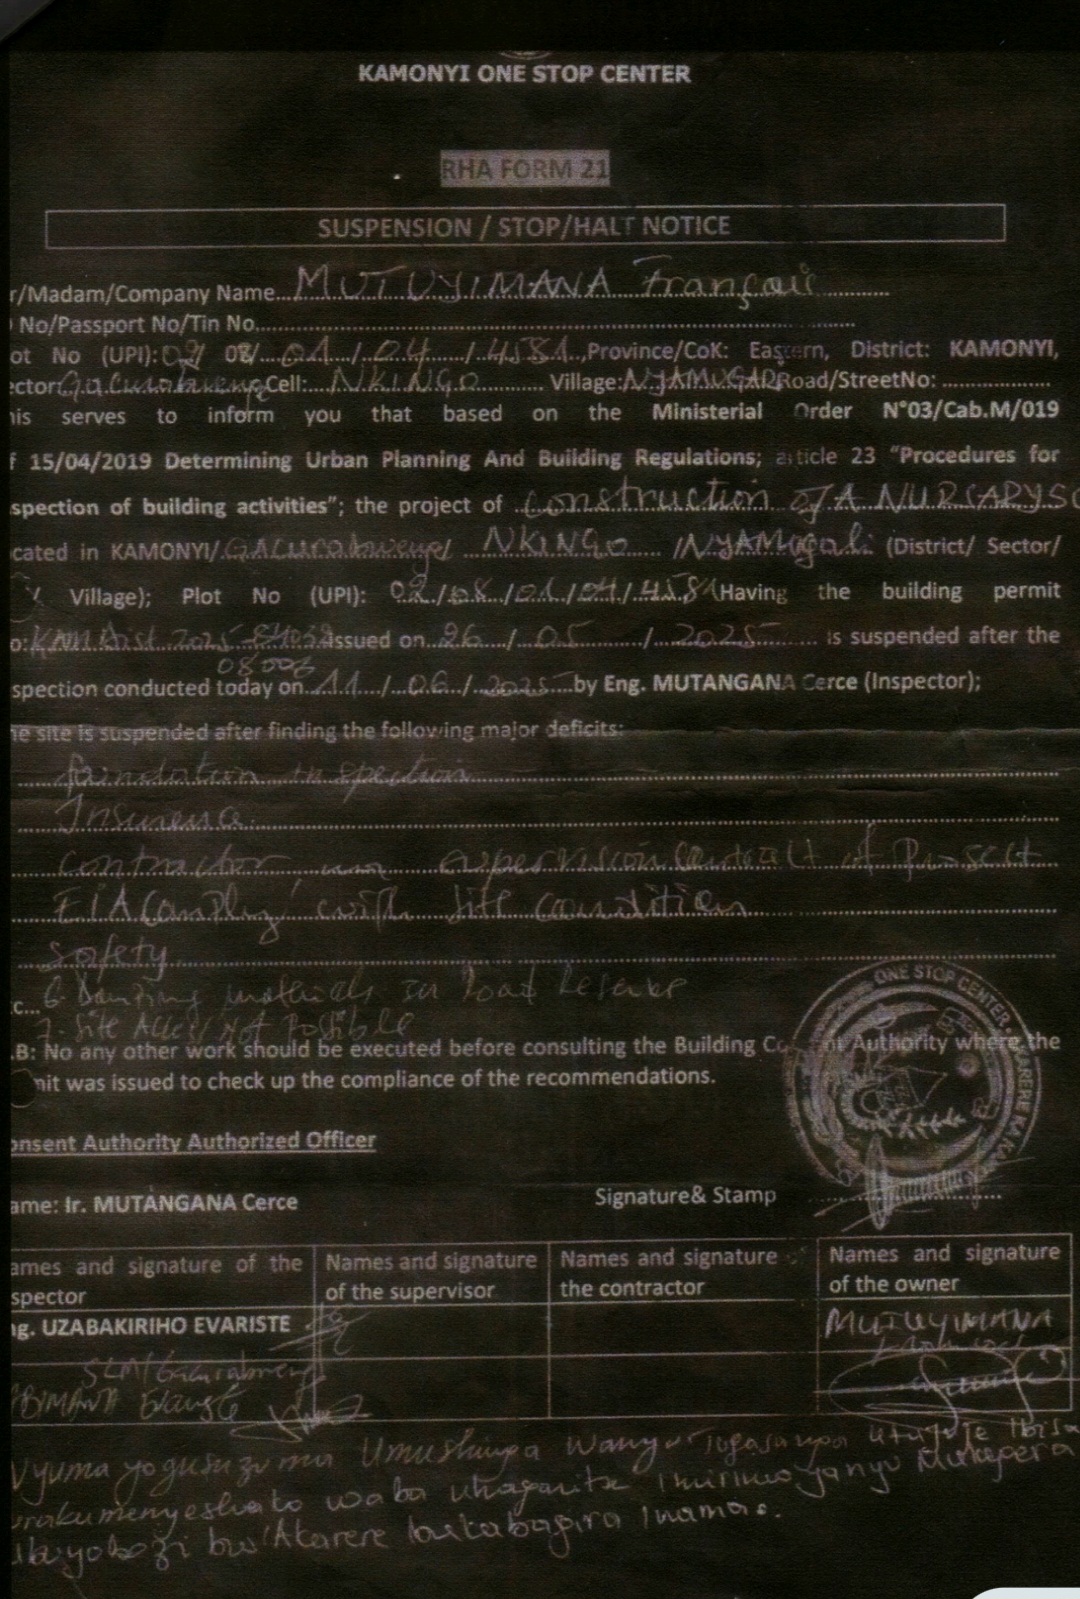 KAMONYI ONE STOP CENTER
RHA FORM 21
SUSPENSION / STOP/HALT NOTICE
r/Madam/Company Name...MUTUYIMANA Françoi
No/Passport No/Tin No
ot No (UPI): 02/08/01/04/4581, Province/CoK: Eastern, District: KAMONYI,
ector: Gacurabwenge Cell: NKINGO Village: NYAMUGALI Road/StreetNo:
is serves to inform you that based on the Ministerial Order N°03/Cab.M/019
f 15/04/2019 Determining Urban Planning And Building Regulations; article 23 “Procedures for
spection of building activities”; the project of construction of A NURSARY SC
cated in KAMONYI/Gacurabwenge/ NKINGO /NYAMUgali (District/ Sector/
/ Village); Plot No (UPI): 02/08/01/04/4581 (Having the building permit
o: KAM Dist 2025 issued on 26/05/2025 is suspended after the
08006
spection conducted today on 11/06/2025 by Eng. MUTANGANA Cerce (Inspector);
he site is suspended after finding the following major deficits:
foundation inspection
Insurence
contractor supervision contract of project
EIA Comply with site condition
safety
c... 6. materials in road Reserve
7. Site Access Not Possible
.B: No any other work should be executed before consulting the Building Authority where the
mit was issued to check up the compliance of the recommendations.
ONE STOP CENTER
onsent Authority Authorized Officer
ame: Ir. MUTANGANA Cerce Signature& Stamp
ames and signature of the spector
Names and signature of the supervisor
Names and signature the contractor
Names and signature of the owner
ng. UZABAKIRIHO EVARISTE
MUTUYIMANA
Nyuma yo gusuzuma Umushinga wanyu Tugasanga
urakumenyeshwa ko waba uhagaritse Imirimo yanyu Mukegera
Ubuyobozi bw'Akarere bukabagira Inama.